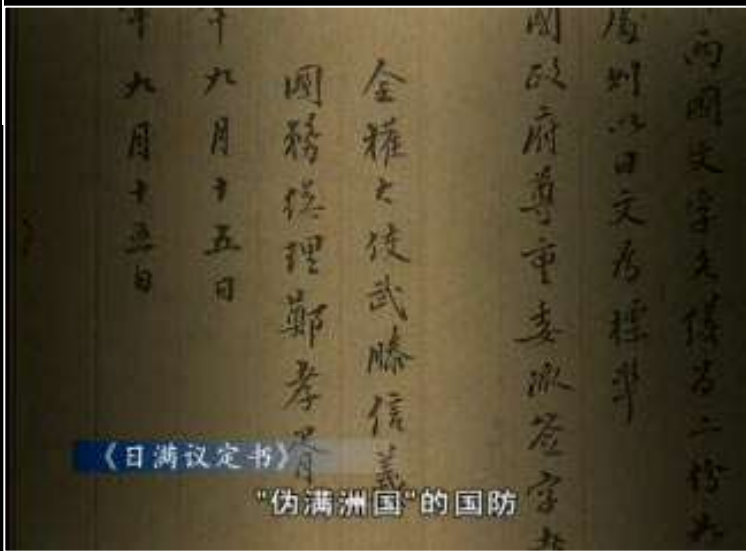 両國文字各繕寫二份夾
處則以日文爲標準
國政府尊重委派簽字者
全權大使武藤信義
國務總理鄭孝胥
年九月十五日
年九月十五日
《日满议定书》
"伪满洲国"的国防